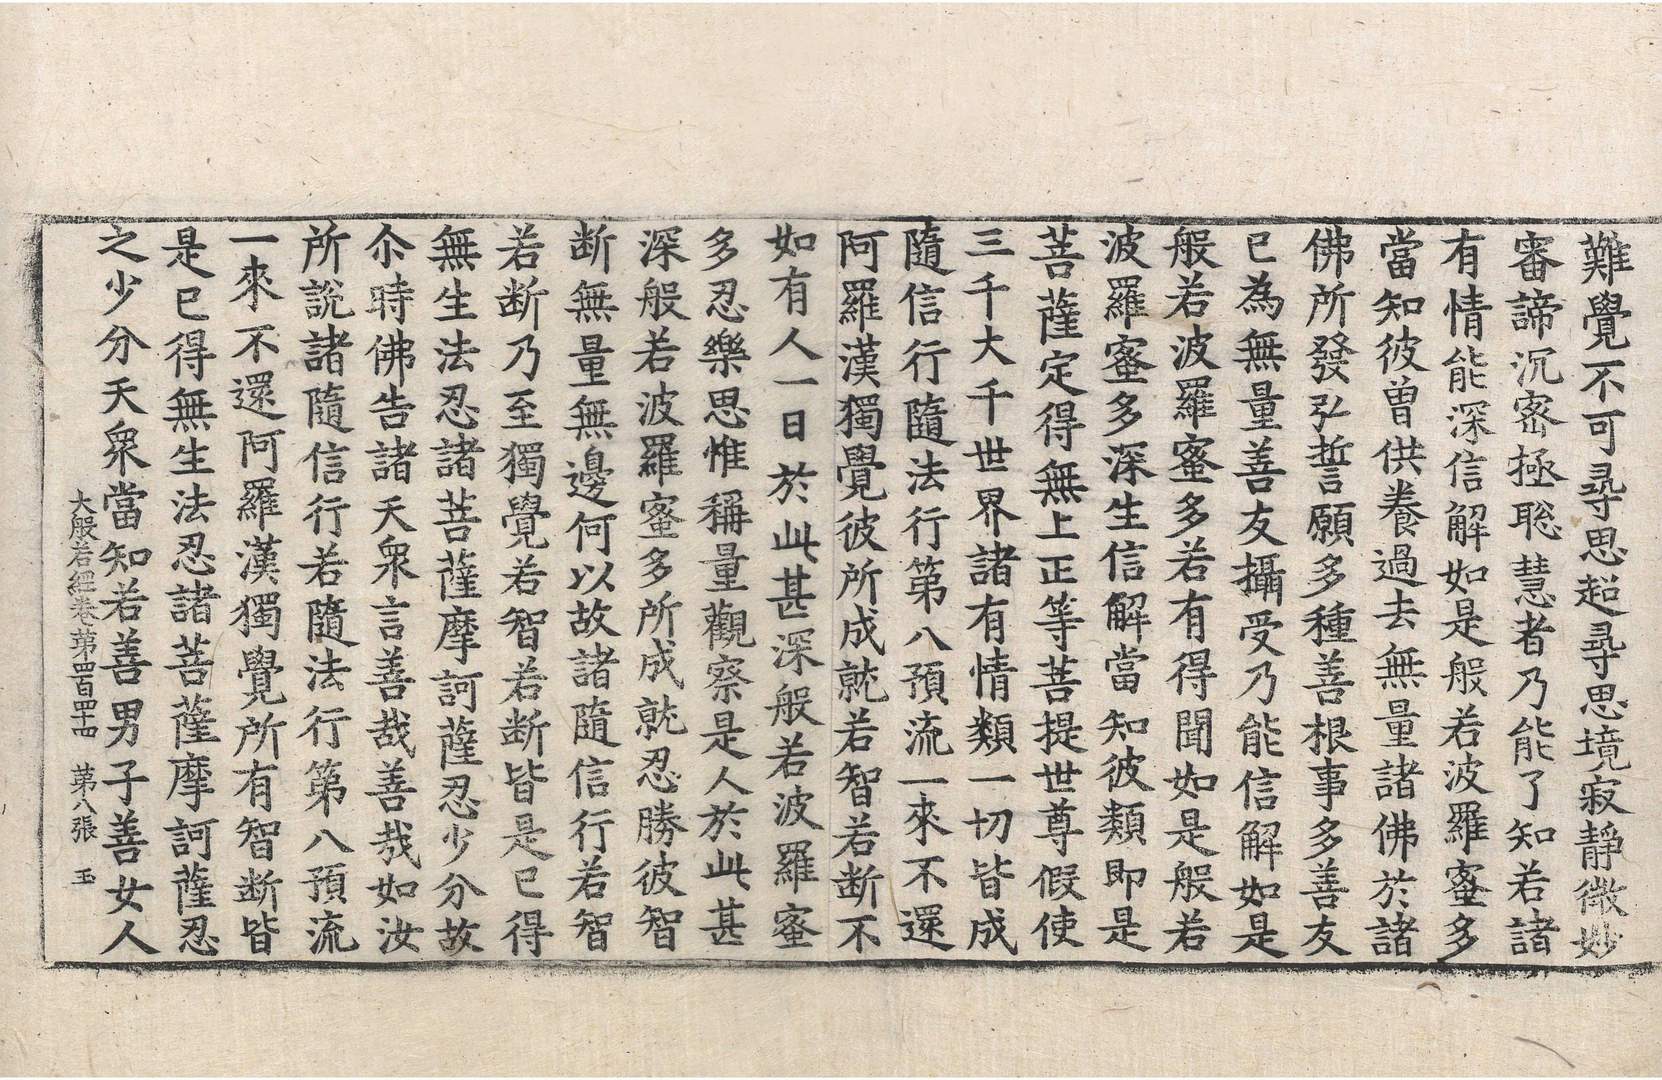 難覺不可尋思超尋思境寂靜微妙
審諦沉密極聡慧者乃能了知若諸
有情能深信解如是般若波羅蜜多
當知彼曽供養過去無量諸佛於諸
佛所發弘誓願多種善根事多善友
已為無量善友攝受乃能信解如是
般若波羅蜜多若有得聞如是般若
波羅蜜多深生信解當知彼類即是
菩薩定得無上正等菩提世尊假使
三千大千世界諸有情類一切皆成
隨信行隨法行第八預流一來不還
阿羅漢獨覺彼所成就若智若断不
如有人一日於此甚深般若波羅蜜
多忍樂思惟稱量觀察是人於此甚
深般若波羅蜜多所成就忍勝彼智
断無量無邊何以故諸隨信行若智
若断乃至獨覺若智若断皆是已得
無生法忍諸菩薩摩訶薩忍少分故
尒時佛告諸天衆言善哉善哉如汝
所說諸隨信行若隨法行第八預流
一來不還阿羅漢獨覺所有智断皆
是已得無生法忍諸菩薩摩訶薩忍
之少分天衆當知若善男子善女人
大般若經卷第四百四十四　第八張　玉